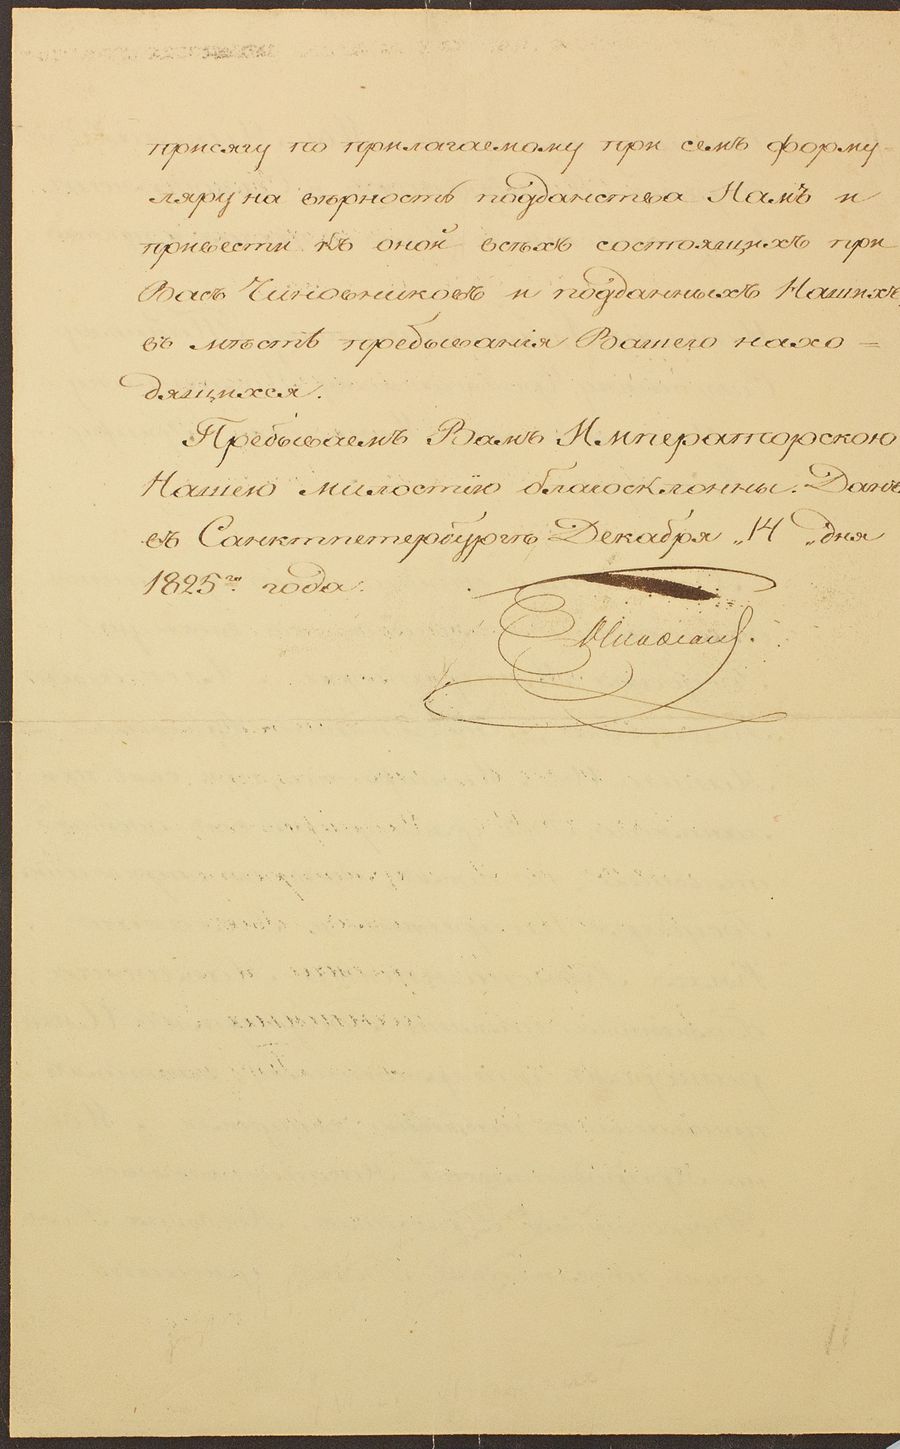 присягу по прилагаемому при семъ форму-
ляру на вѣрность подданства Намъ и
привести къ оной всѣхъ состоящихъ при
Васъ Чиновниковъ и подданныхъ Нашихъ,
въ мѣстѣ пребыванія Вашего нахо=
дящихся.
Пребываемъ Вамъ Императорскою
Нашею милостію благосклонны. Данъ
въ Санктпетербургѣ Декабря „14„ дня
1825го. года.
Николай.